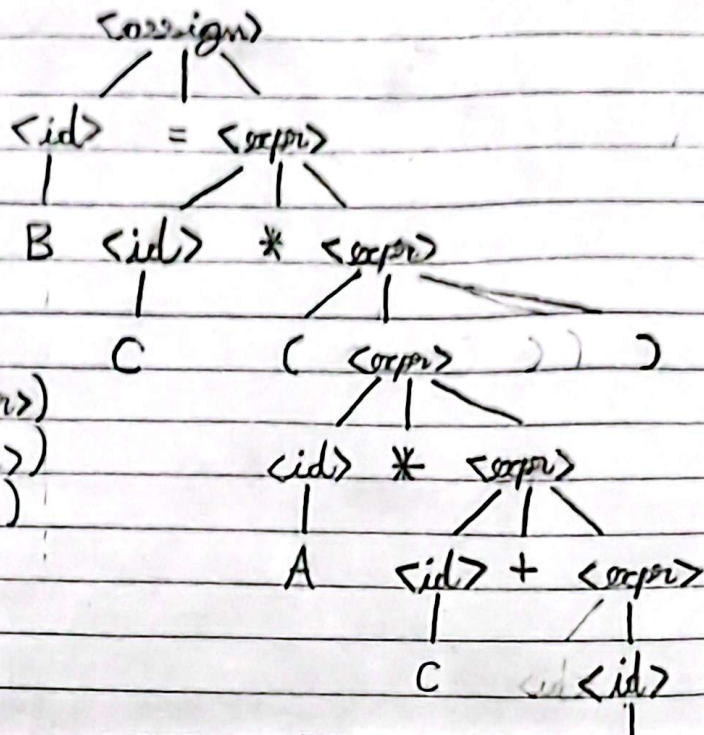 <assign>
<id> = <expr>
B <id> * <expr>
C ( <expr> )
r>)
<id> * <expr>
>)
)
A <id> + <expr>
C <id>